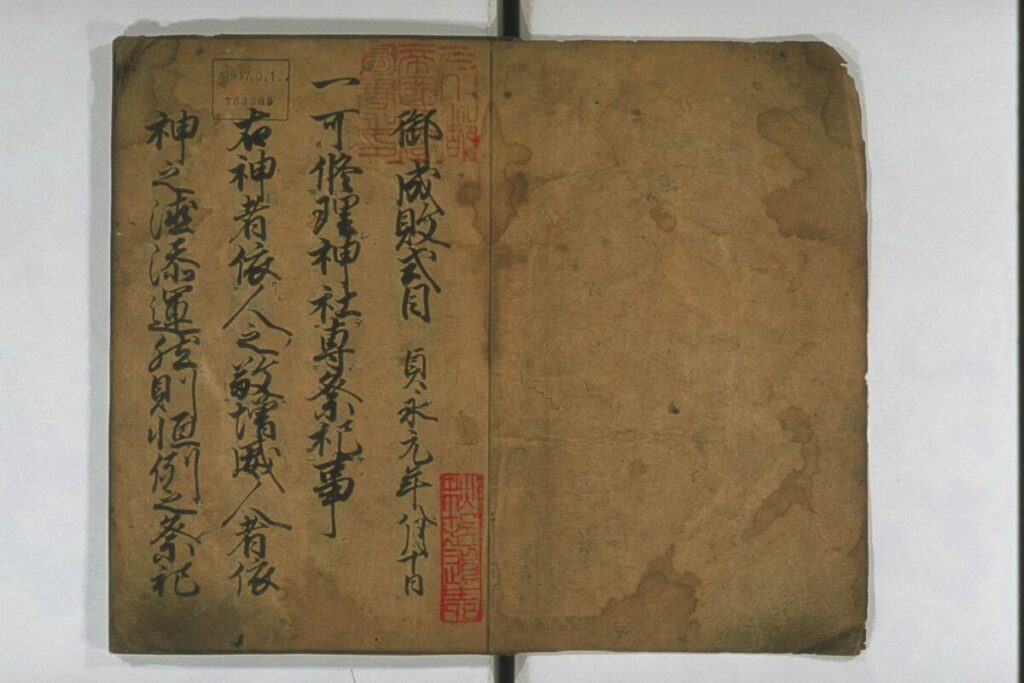 御成敗式目 貞永元年八月十日
一可修理神社専祭祀事
右神者依人之敬増威人者依
神之徳添運然則恒例之祭祀
昭和17.9.1.
783389